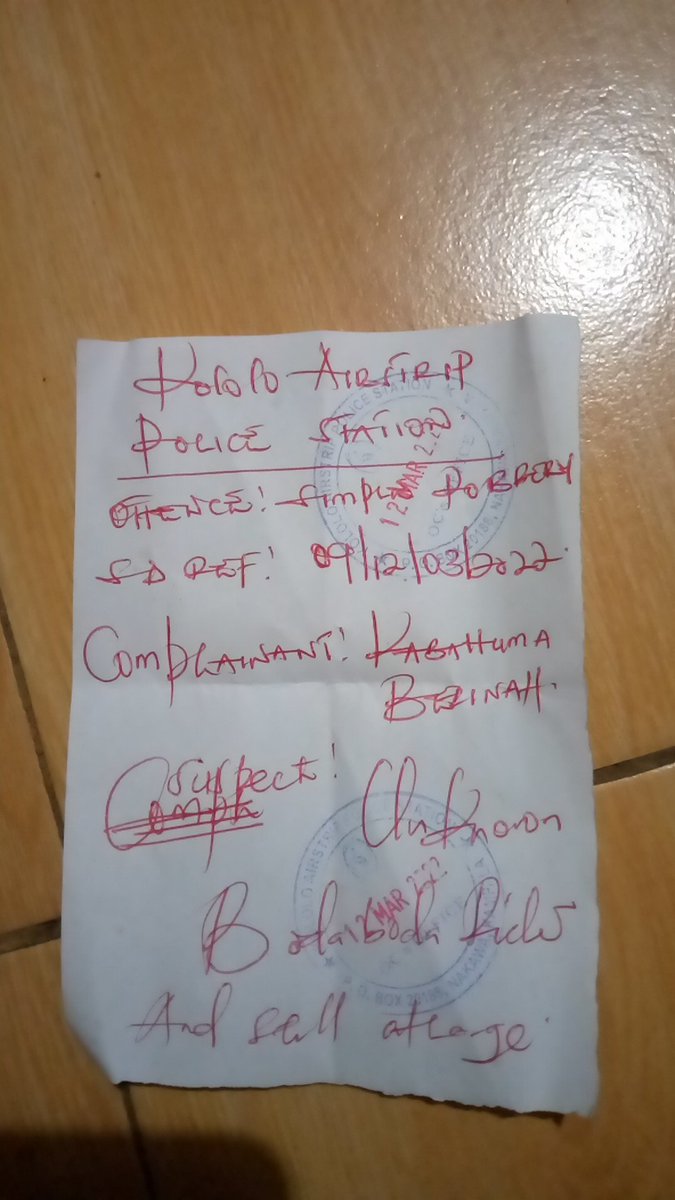 Kololo AIRSTRIP
POLICE STATION.
OFFENCE: Simple ROBBERY
SD REF: 09/12/03/2022.
COMPLAINANT: KABAHUMA
BEZINAH.
suspect: UnKnown
Comph
Bodaboda Rider
And still atlarge.
KOLOLO AIRSTRIP POLICE STATION
12 MAR 202
OC'S OFFICE
KOLOLO AIRSTRIP STATION
12 MAR 202
OFFICE
P.O. BOX 20188, NAKAWA